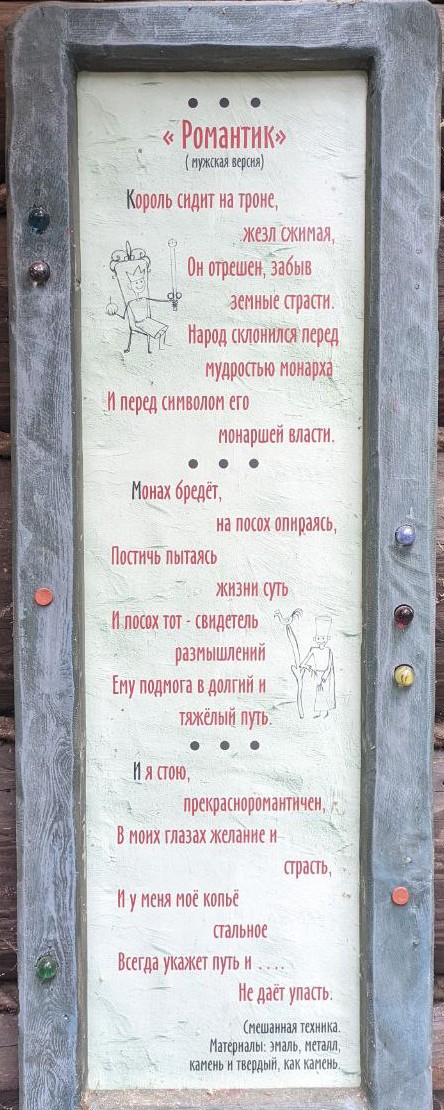 « Романтик»
( мужская версия)
Король сидит на троне,
жезл сжимая,
Он отрешен, забыв
земные страсти.
Народ склонился перед
мудростью монарха
И перед символом его
монаршей власти.
Монах бредёт,
на посох опираясь,
Постичь пытаясь
жизни суть
И посох тот - свидетель
размышлений
Ему подмога в долгий и
тяжёлый путь.
И я стою,
прекраснoромантичен,
В моих глазах желание и
страсть,
И у меня моё копьё
стальное
Всегда укажет путь и ….
Не даёт упасть.
Смешанная техника.
Материалы: эмаль, металл,
камень и твердый, как камень.